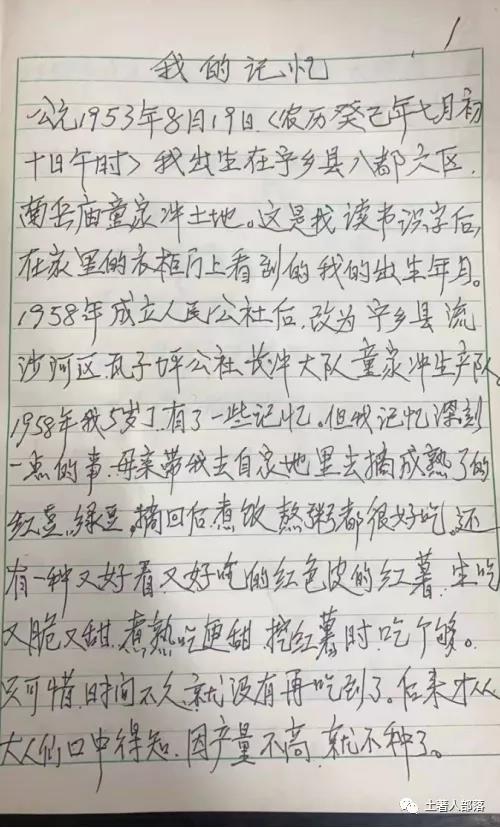 1
我的记忆
公元1953年8月19日〈农历癸己年七月初
十日午时〉我出生在宁乡县八都交区,
南岳庙童家冲土地。这是我读书识字后,
在家里的衣柜门上看到的我的出生年月。
1958年成立人民公社后,改为宁乡县流
沙河区瓦子坪公社长冲大队童家冲生产队。
1958年我5岁了,有了一些记忆。但我记忆深刻
一点的事,母亲带我去自家地里去摘成熟了的
红豆,绿豆,摘回后煮饭熬粥都很好吃。还
有一种又好看又好吃的红色皮的红薯,生吃
又脆又甜,煮熟吃更甜,挖红薯时,吃个够。
只可惜,时间不久,就没有再吃到了。后来才从
大人们口中得知,因产量不高,就不种了。
土著人部落